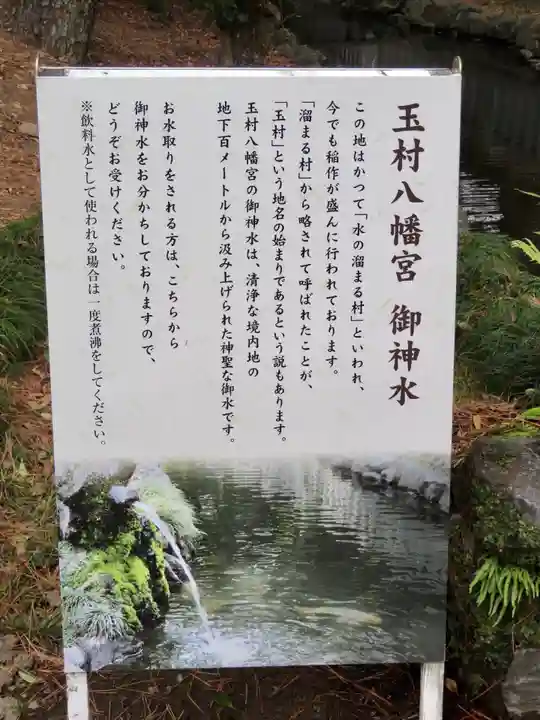 玉村八幡宮 御神水
この地はかつて「水の溜まる村」といわれ、
今でも稲作が盛んに行われております。
「溜まる村」から略されて呼ばれたことが、
「玉村」という地名の始まりであるという説もあります。
玉村八幡宮の御神水は、清浄な境内地の
地下百メートルから汲み上げられた神聖な御水です。
お水取りをされる方は、こちらから
御神水をお分かちしておりますので、
どうぞお受けください。
※飲料水として使われる場合は一度煮沸をしてください。